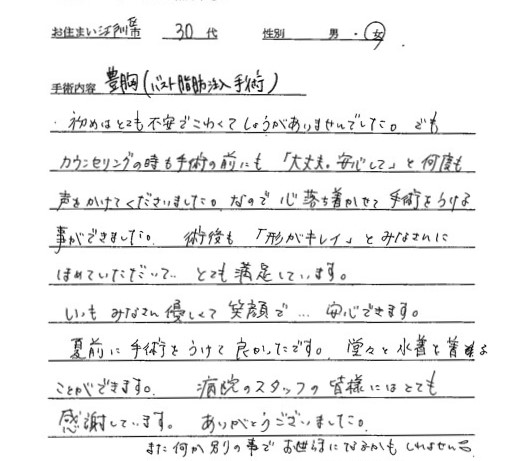 お住まい 江別市 30代 性別 男・女
手術内容 豊胸(バスト脂肪注入手術)
・初めはとても不安でこわくてしょうがありませんでした。でも
カウンセリングの時も手術の前にも「大丈夫。安心して」と何度も
声をかけてくださいました。なので心落ち着かせて手術をうける
事ができました。術後も「形がキレイ」とみなさんに
ほめていただいて‥とても満足しています。
いつもみなさん優しくて笑顔で…安心できます。
夏前に手術をうけて良かったです。堂々と水着を着る
ことができます。病院のスタッフの皆様にはとても
感謝しています。ありがとうございました。
また何か別の事でお世話になるかもしれません